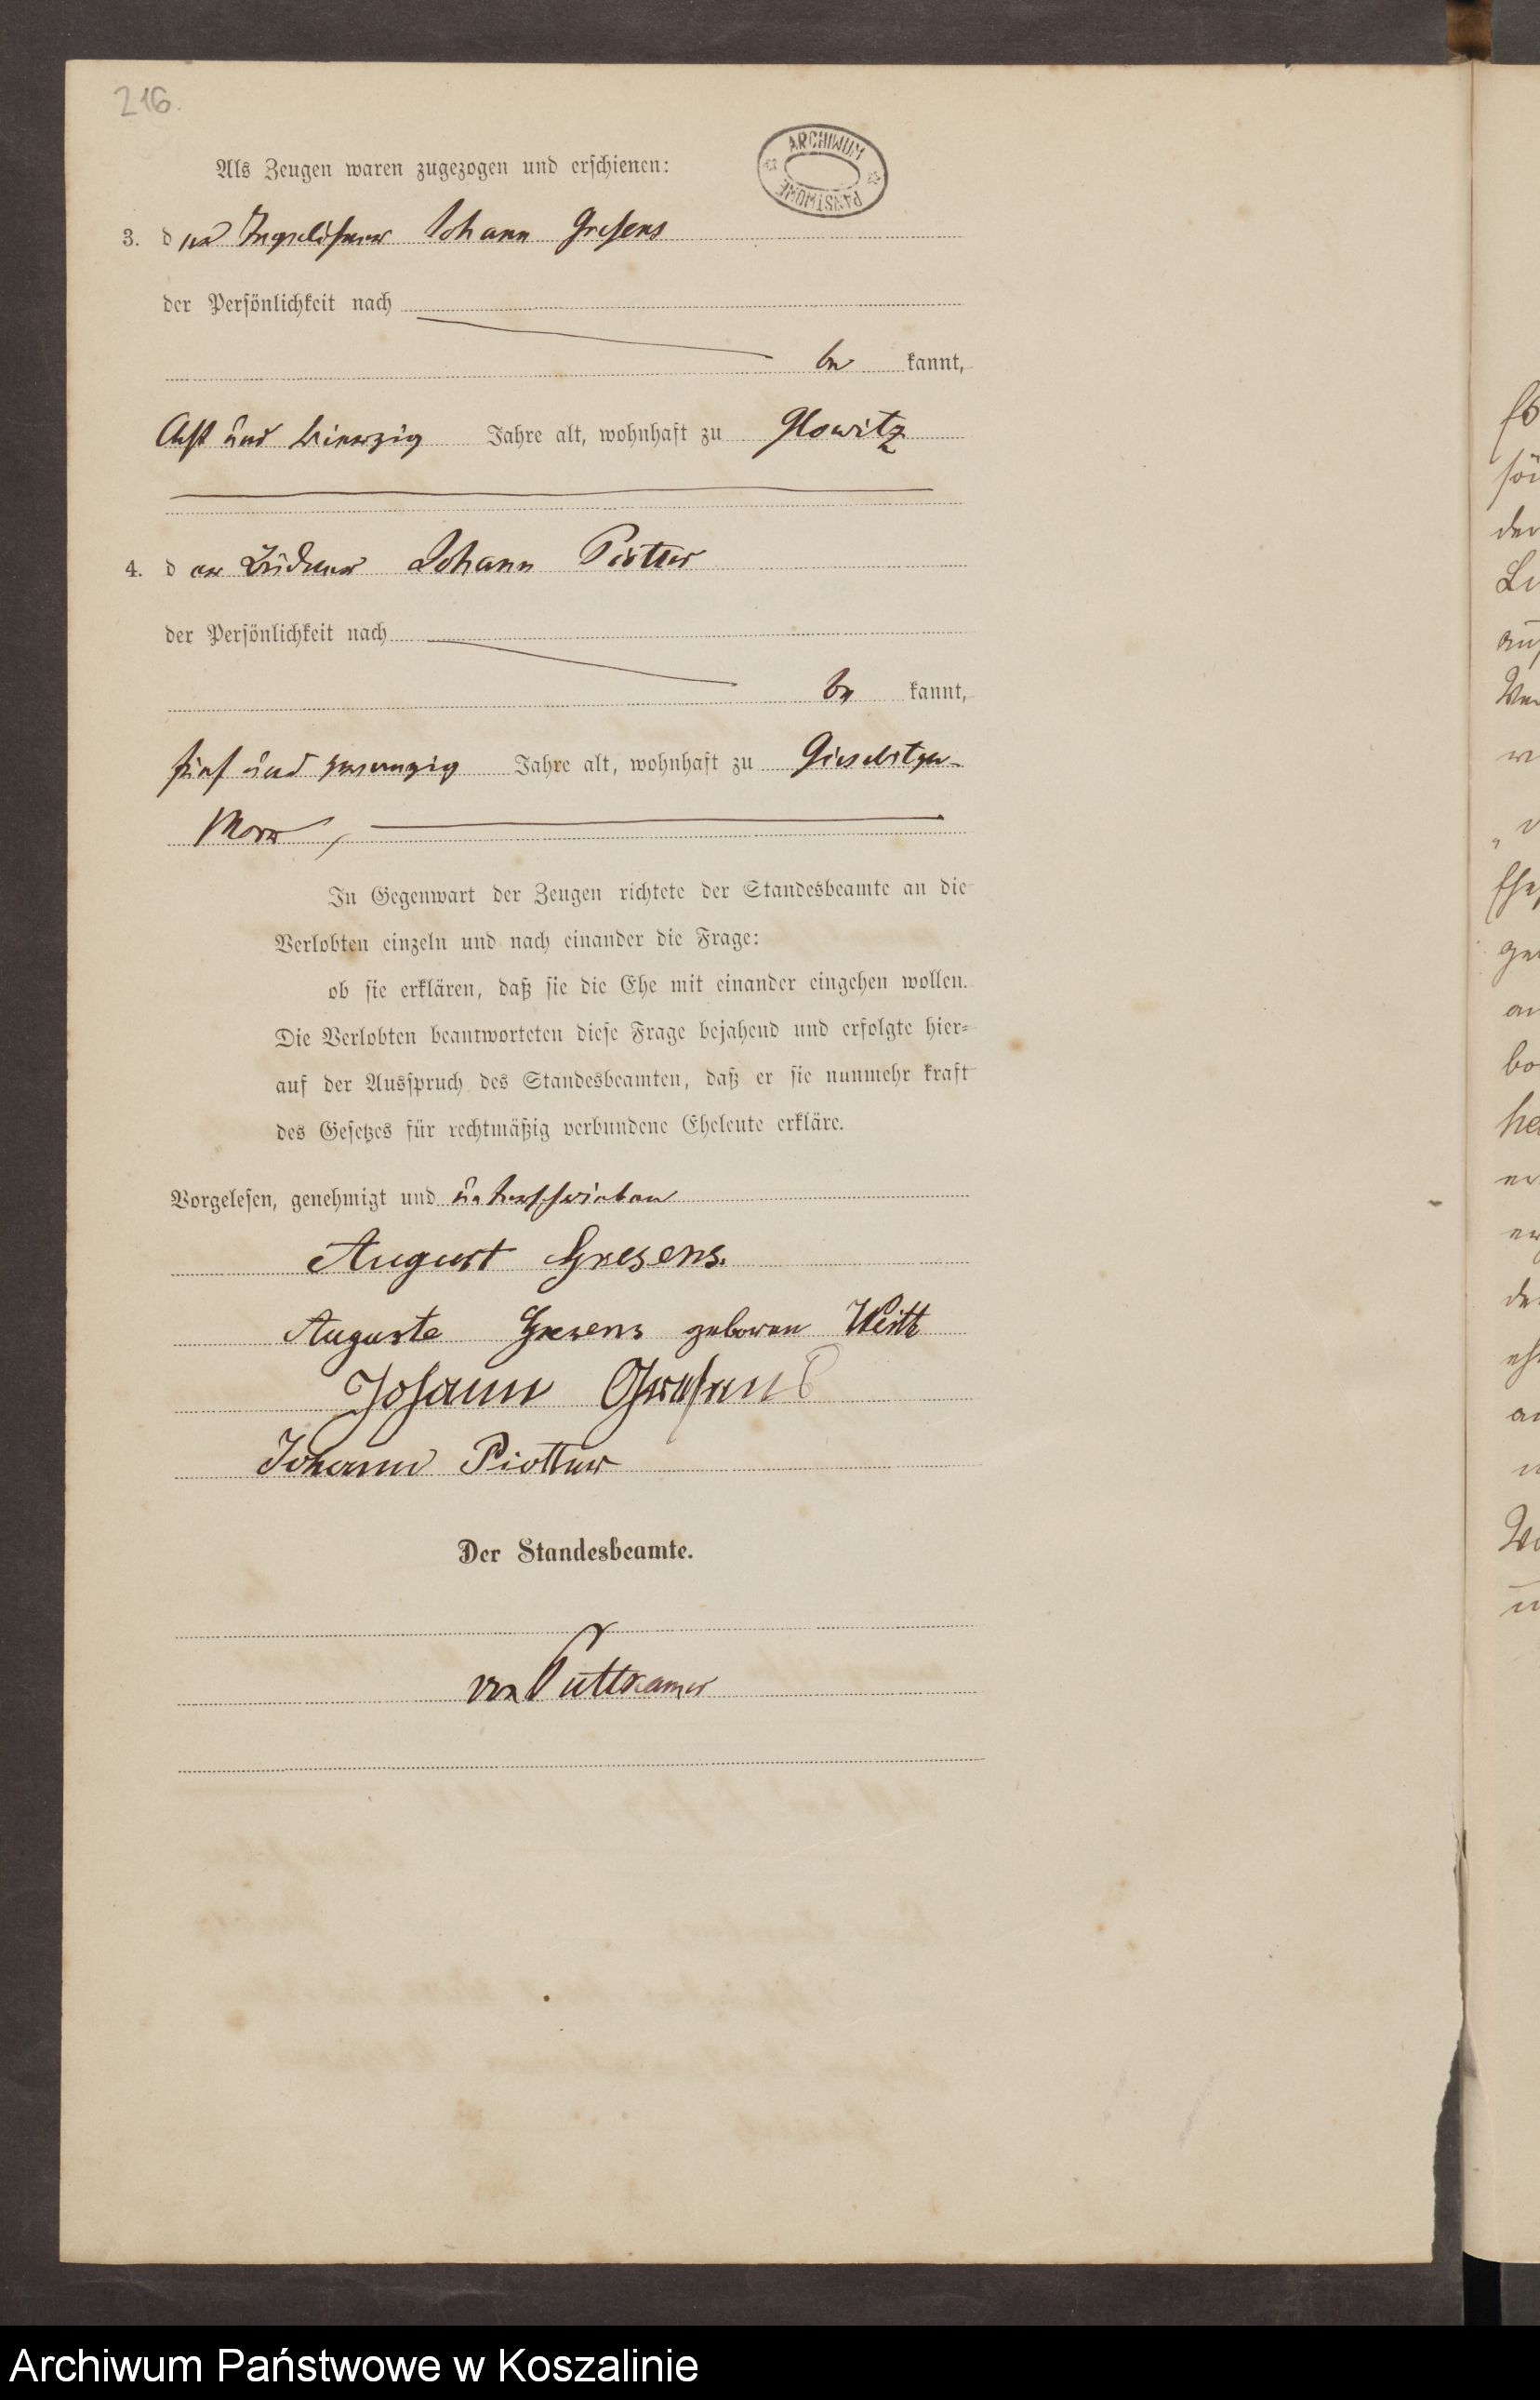 216.
ARCHIWUM PAŃSTWOWE
Als Zeugen waren zugezogen und erschienen:
3. der Johann Gresens
der Persönlichkeit nach
be kannt,
Acht und vierzig Jahre alt, wohnhaft zu Glowitz
4. der Büdner Johann Piotter
der Persönlichkeit nach
be kannt,
fünf und zwanzig Jahre alt, wohnhaft zu Giesebitzer-
Moor,
In Gegenwart der Zeugen richtete der Standesbeamte an die
Verlobten einzeln und nach einander die Frage:
ob sie erklären, daß sie die Ehe mit einander eingehen wollen.
Die Verlobten beantworteten diese Frage bejahend und erfolgte hier-
auf der Ausspruch des Standesbeamten, daß er sie nunmehr kraft
des Gesetzes für rechtmäßig verbundene Eheleute erkläre.
Vorgelesen, genehmigt und unterschrieben
August Gresens.
Auguste Gresens geboren
Johann Gresens
Johann Piotter
Der Standesbeamte.
von Puttkamer
Archiwum Państwowe w Koszalinie